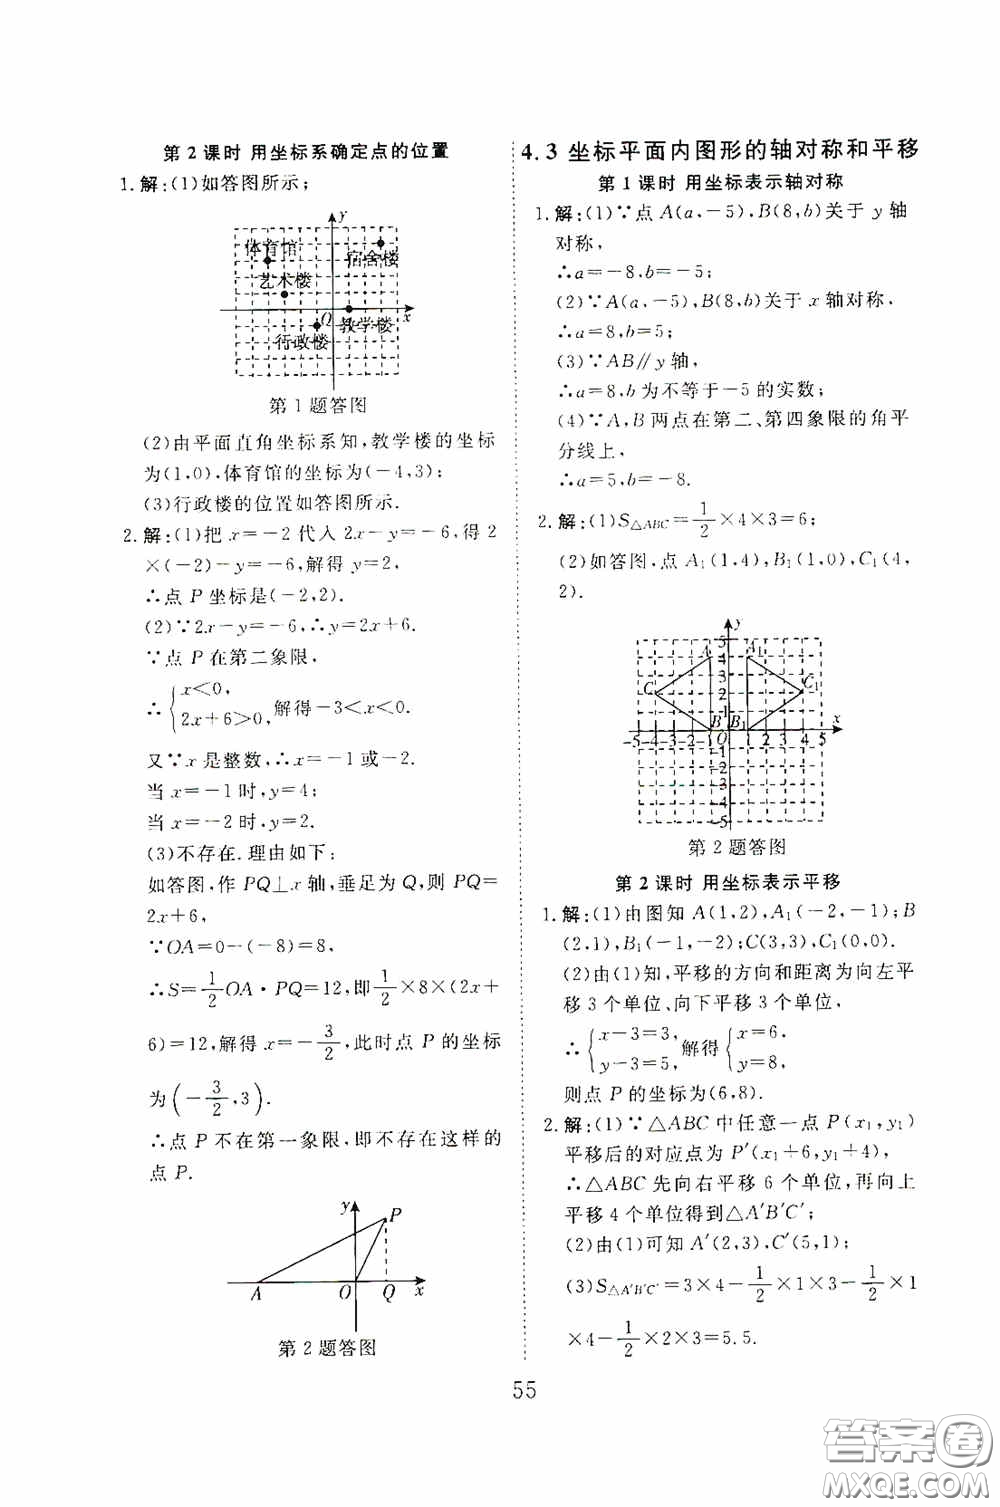 第2课时 用坐标系确定点的位置
1.解:(1)如答图所示;
y
体育馆
宿舍楼
艺术楼
O
x
教学楼
行政楼
第1题答图
(2)由平面直角坐标系知,教学楼的坐标
为(1,0),体育馆的坐标(-4,3);
(3)行政楼的位置如答图所示.
2.解:(1)把 x=-2 代入 2x-y=-6,得 2
×(-2)-y=-6,解得 y=2,
∴点 P 坐标是(-2,2).
(2)∵2x-y=-6,∴y=2x+6.
∵点 P 在第二象限,
∴{x<0, 2x+6>0,解得-3<x<0.
又∵x 是整数,∴x=-1 或-2.
当 x=-1 时,y=4;
当 x=-2 时,y=2.
(3)不存在.理由如下:
如答图,作 PQ⊥x 轴,垂足为 Q,则 PQ=
2x+6,
∵OA=0-(-8)=8,
∴S=1/2 OA·PQ=12,即1/2×8×(2x+
6)=12,解得 x=-3/2,此时点 P 的坐标
为(-3/2,3).
∴点 P 不在第一象限,即不存在这样的
点 P.
y
P
A
O
Q
x
第2题答图
4.3 坐标平面内图形的轴对称和平移
第1课时 用坐标表示轴对称
1.解:(1)∵点 A(a,-5),B(8,b)关于 y 轴
对称,
∴a=-8,b=-5;
(2)∵A(a,-5),B(8,b)关于 x 轴对称,
∴a=8,b=5;
(3)∵AB∥y 轴,
∴a=8,b 为不等于-5 的实数;
(4)∵A,B 两点在第二、第四象限的角平
分线上,
∴a=5,b=-8.
2.解:(1)S△ABC=1/2×4×3=6;
(2)如答图,点 A1(1,4),B1(1,0),C1(4,
2).
y
5
A 4 A1
3
C 2 C1
1
B B1 x
-5-4-3-2-1 O 1 2 3 4 5
-1
-2
-3
-4
-5
第2题答图
第2课时 用坐标表示平移
1.解:(1)由图知 A(1,2),A1(-2,-1);B
(2,1),B1(-1,-2);C(3,3),C1(0,0).
(2)由(1)知,平移的方向和距离为向左平
移 3 个单位、向下平移 3 个单位,
∴{x-3=3, y-3=5,解得{x=6, y=8,
则点 P 的坐标为(6,8).
2.解:(1)∵△ABC 中任意一点 P(x1,y1)
平移后的对应点为 P′(x1+6,y1+4),
∴△ABC 先向右平移 6 个单位,再向上
平移 4 个单位得到△A′B′C′;
(2)由(1)可知 A′(2,3),C′(5,1);
(3)S△A′B′C′=3×4-1/2×1×3-1/2×1
×4-1/2×2×3=5.5.
55
答案圈
MXQE.COM